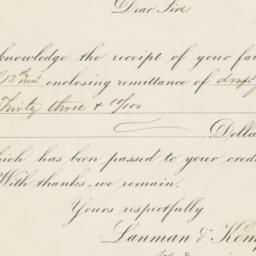 Dear Sir
knowledge the receipt of your fa
13th inst enclosing remittance of draft
Thirty three & 10/100
Dolla
hich has been passed to your cred
With thanks, we remain,
Yours respectfully
Lanman & Kem